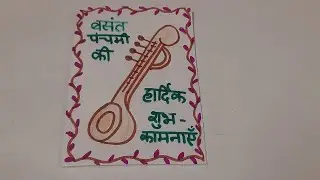 बसंत
पंचमी
की
हार्दिक
शुभ -
कामनाएँ